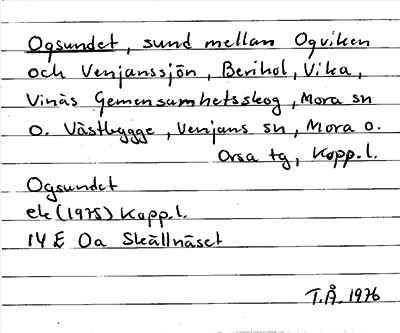 Ogsundet, sund mellan Ogviken
och Venjanssjön, Berihol, Vika,
Vinäs Gemensamhetsskog, Mora sn
o. Västbygge, Venjans sn, Mora o.
Orsa tg, Kopp.l.
Ogsundet
ek (1975) Kopp.l.
14 E 0a Skällnäset
T.Å. 1976